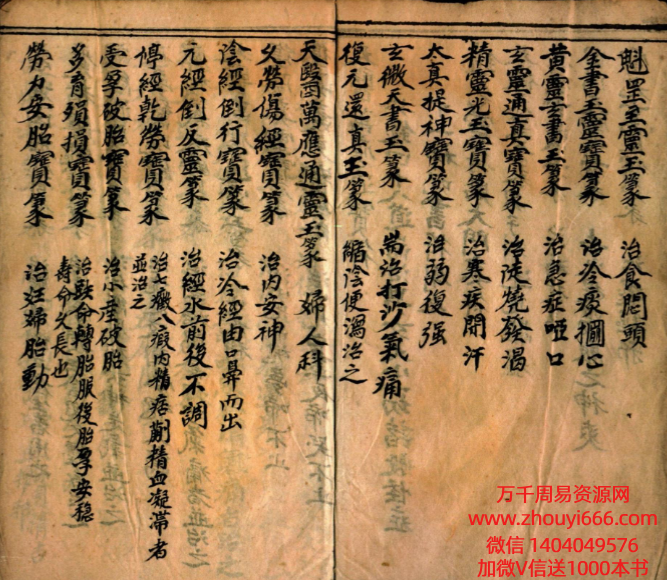 魁罡玉靈玉篆 治食悶頭
金書玉靈寶篆 治冷痰捆心
黄靈玉書玉篆 治急症啞口
玄靈通真寶篆 治陡燒發渴
精靈光玉寶篆 治寒疾閉汗
太真捉神寶篆 治弱復强
玄微天書玉篆 耑治打沙氣痛
復元還真玉篆 縮陰便濁治之
天醫萬應通靈玉篆 婦人科
久勞傷經寶篆 治内安神
陰經倒行寶篆 治冷經由口鼻而出
元經倒反靈篆 治經水前後不調
停經乾勞寶篆 治七癥八瘕内精痞
精血凝滯者
並治之
受孕破胎寶篆 治小產破胎
多育殞損寶篆 治跌命轉胎服後胎孕安穩
壽命久長也
勞力安胎寶篆 治妊婦胎動
万千周易资源网
www.zhouyi666.com
微信 1404049576
加微V信送1000本书